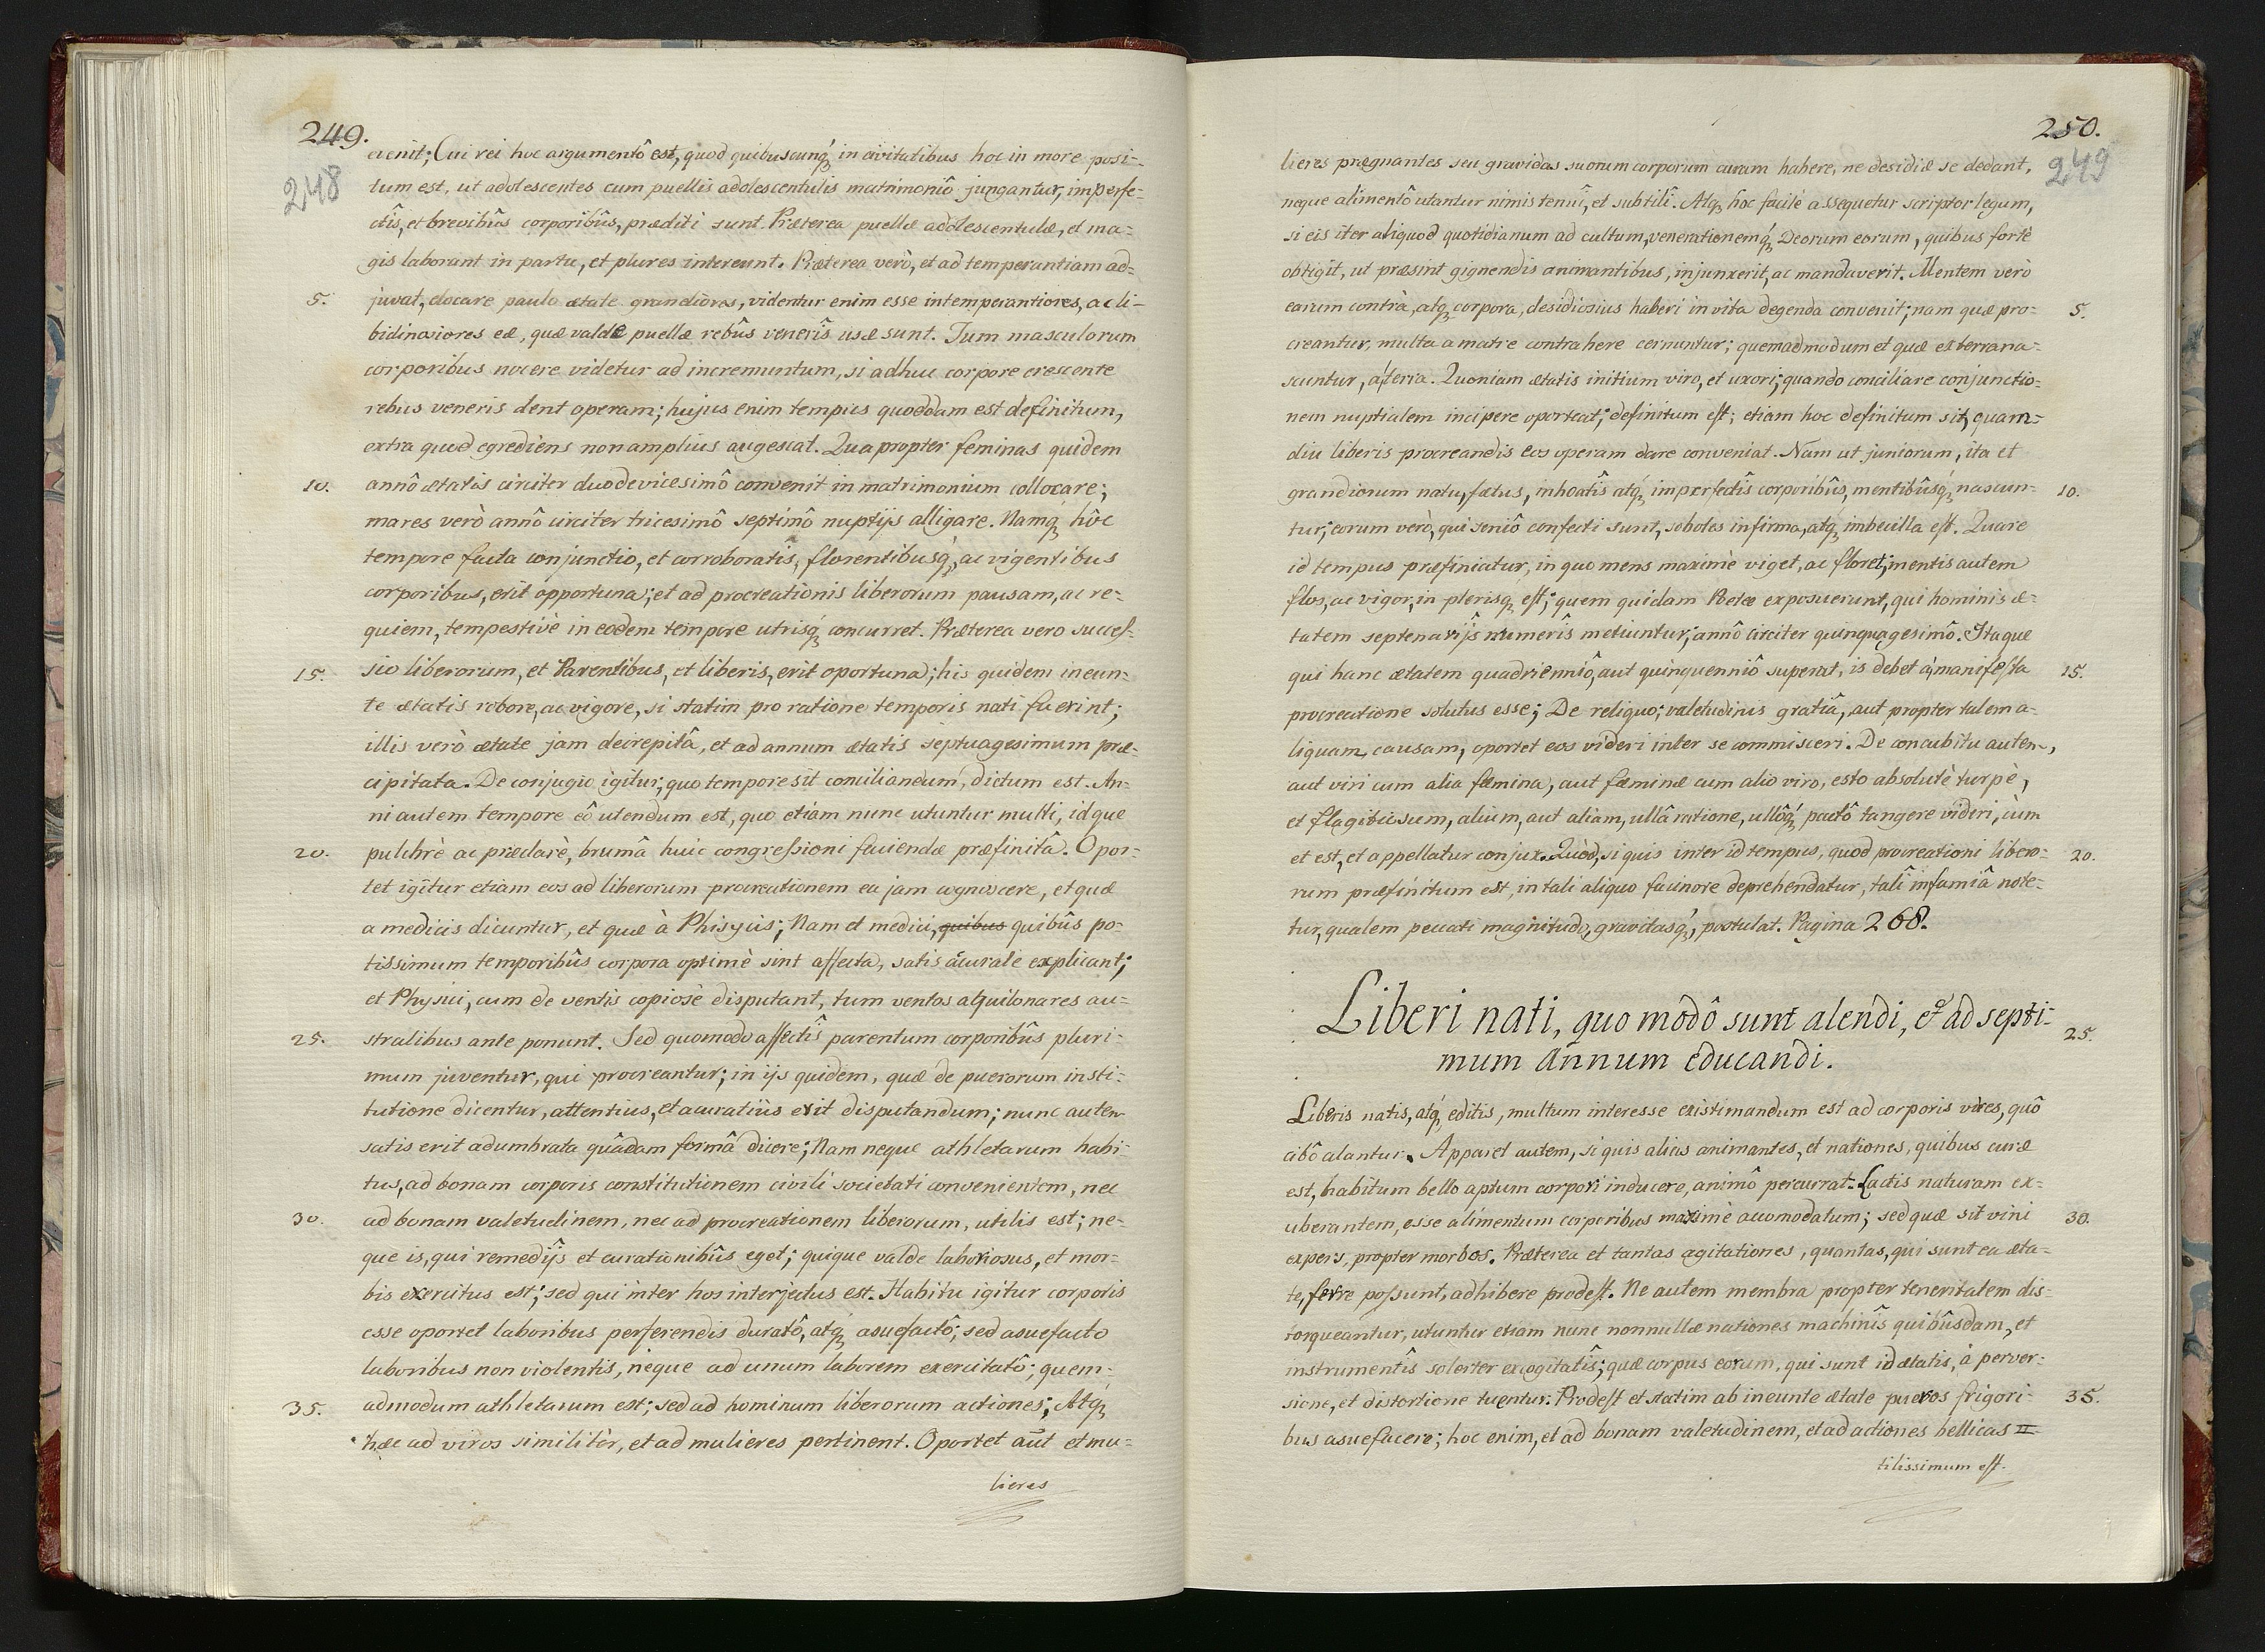 249.
248
evenit; Cui rei hoc argumentô est, quod quibuscunq́ in civitatibus hoc in more posi-
tum est, ut adolescentes cum puellis adolescentulis matrimoniô jungantur, imperfe-
ctîs, et brevibûs corporibûs, præditi sunt. Præterea puellæ adolescentulæ, et ma-
gis laborant in partu, et plures intereunt. Præterea verò, et ad temperantiam ad-
5. juvat, elocare paulo ætate grandiores, videntur enim esse intemperantiores, ac li-
bidinosiores eæ, quæ valde puellæ rebûs venerîs usæ sunt. Tum masculorum
corporibus nocere videtur ad incrementum, si adhuc corpore crescente
rebus veneris dent operam; hujus enim tempus quoddam est definitum,
extra quod egrediens non amplius augescat. Quapropter feminas quidem
10. annô ætatis circiter duodevicesimô convenit in matrimonium collocare;
mares verò annô circiter tricesimô septimô nuptijs alligare. Namq́ hôc
tempore facta conjunctio, et corroboratîs, florentibusq́, ac vigentibus
corporibus, erit opportuna; et ad procreationis liberorum pausam, ac re-
quiem, tempestivè in eodem tempore utrisq́ concurret. Præterea vero succes-
15. sio liberorum, et Parentibus, et liberis, erit oportuna; his quidem ineun-
te ætatis robore, ac vigore, si statim pro ratione temporis nati fuerint;
illis verò ætate jam decrepitâ, et ad annum ætatis septuagesimum præ-
cipitata. De conjugio igitur, quo tempore sit conciliandum, dictum est. An-
ni autem tempore eô utendum est, quo etiam nunc utuntur multi, idque
20. pulchrè ac præclarè, brumâ huic congressioni faciendæ præfinitâ. Opor-
tet igitur etiam eos ad liberorum procreationem ea jam cognoscere, et quæ
a medicis dicuntur, et quæ à Phisycis; Nam et medici, quibus quibûs po-
tissimum temporibûs corpora optimè sint affecta, satis acurate explicant;
et Physici, cum de ventis copiosè disputant, tum ventos aquilonares au-
25. stralibus ante ponunt. Sed quomodo affectîs parentum corporibûs pluri-
mum juventur, qui procreantur; in ijs quidem, quæ de puerorum insti-
tutione dicentur, attentius, et acuratiùs erit disputandum; nunc autem
satis erit adumbrata quâdam formâ dicere; Nam neque athletarum habi-
tus, ad bonam corporis constitutionem civili societati convenientem, nec
30. ad bonam valetudinem, nec ad procreationem liberorum, utilis est; ne-
que is, qui remedijs et curationibûs eget; quique valde laboriosus, et mor-
bis exercitus est; sed qui inter hos interjectus est. Habitu igitur corporis
esse oportet laboribus perferendis duratô, atq́ asuefactô; sed asuefacto
laboribus non violentis, neque ad unum laborem exercitatô; quem-
35. admodum athletarum est; sed ad hominum liberorum actiones; Atq́
hæc ad viros similitèr, et ad mulieres pertinent. Oportet aut̃ et mu-
lieres
250.
249
lieres prægnantes seu gravidas suorum corporum curam habere, ne desidiæ se dedant,
neque alimentô utantur nimis tenuî, et subtilî. Atq́ hoc facilè assequetur scriptor legum,
si eis iter aliquod quotidianum ad cultum, venerationemq́ Deorum eorum, quibus fortè
obtigit, ut præsint gignendis animantibus, injunxerit, ac mandaverit. Mentem verò
earum contrà, atq́ corpora, desidiosius haberi in vita degenda convenit; nam quæ pro- 5.
creantur, multa a matre contrahere cernuntur; quemadmodum et quæ ex terra na-
scuntur, a terra. Quoniam ætatis initium viro, et uxori; quando conciliare conjunctio-
nem nuptialem incipere oporteat; definitum est; etiam hoc definitum sit, quam-
diu liberis procreandis eos operam dare conveniat. Nam ut juniorum, ita et
grandiorum natu, fætus, inhoatîs atq́ imperfectîs corporibûs, mentibûsq́ nascun- 10.
tur; eorum verò, qui seniô confecti sunt, soboles infirma, atq́ imbecilla est. Quare
id tempus præfiniatur, in quo mens maximè viget, ac floret; mentis autem
flos, ac vigor, in plerisq́ est; quem quidam Poetæ exposuerunt, qui hominis æ-
tatem septenarijs numerîs metiuntur; annô circiter quinquagesimô. Itaque
qui hanc ætatem quadrienniô, aut quinquenniô superat, is debet a, manifesta 15.
procreatione solutus esse; De reliquo; valetudinis gratiâ, aut propter talem a-
liquam causam, oportet eos videri inter se commisceri. De concubitu autem,
aut viri cum alia fæmina, aut fæminæ cum alio viro, esto absolutè turpè,
et flagitiosum, alium, aut aliam, ullâ ratione, ullôq́ pactô tangere videri, cùm
et est, et appellatur conjux. Quòd, si quis inter id tempus, quod procreationi libero- 20.
rum præfinitum est, in tali aliquo facinore deprehendatur, talî infamiâ note-
tur, qualem peccati magnitudo, gravitasq́, postulat. Pagina 268.
Liberi nati, quo modô sunt alendi, et ad septi-
25.
mum annum educandi.
Liberis natis, atq́ editis, multum interesse existimandum est ad corporis vires, quô
cibô alantur. Apparet autem, si quis alias animantes, et nationes, quibus curæ
est, habitum bello aptum corpori inducere, animô percurrat. Lactis naturam ex-
uberantem, esse alimentum corporibus maximè acomodatum; sed quæ sit vini 30.
expers, propter morbos. Præterea et tantas agitationes, quantas, qui sunt ea æta-
te, ferre possunt, adhibere prodest. Ne autem membra propter teneritatem dis-
torqueantur, utuntur etiam nunc nonnullæ nationes machinîs quibûsdam, et
instrumentîs solerter excogitatîs; quæ corpus eorum, qui sunt id ætatis, à perver-
sione, et distortione tuentur. Prodest et statim ab ineunte ætate pueros frigori- 35.
bus asuefacere; hoc enim, et ad bonam valetudinem, et ad actiones bellicas u-
tilissimum est.